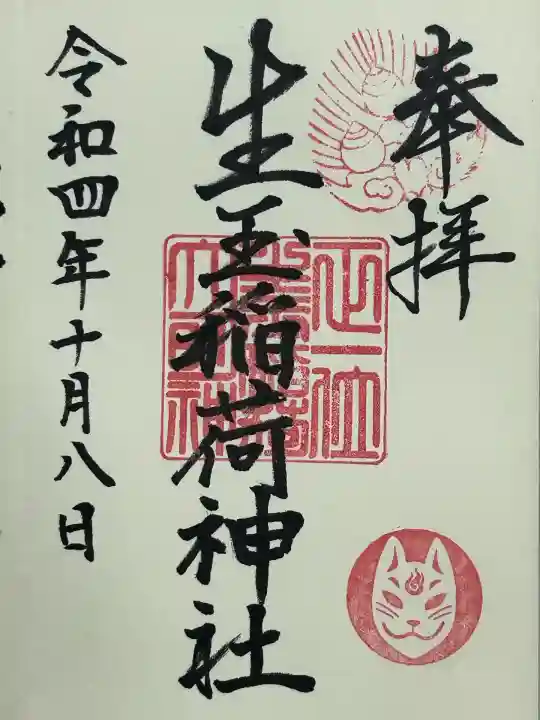 奉拝
正一位
生玉稲荷神社
令和四年十月八日